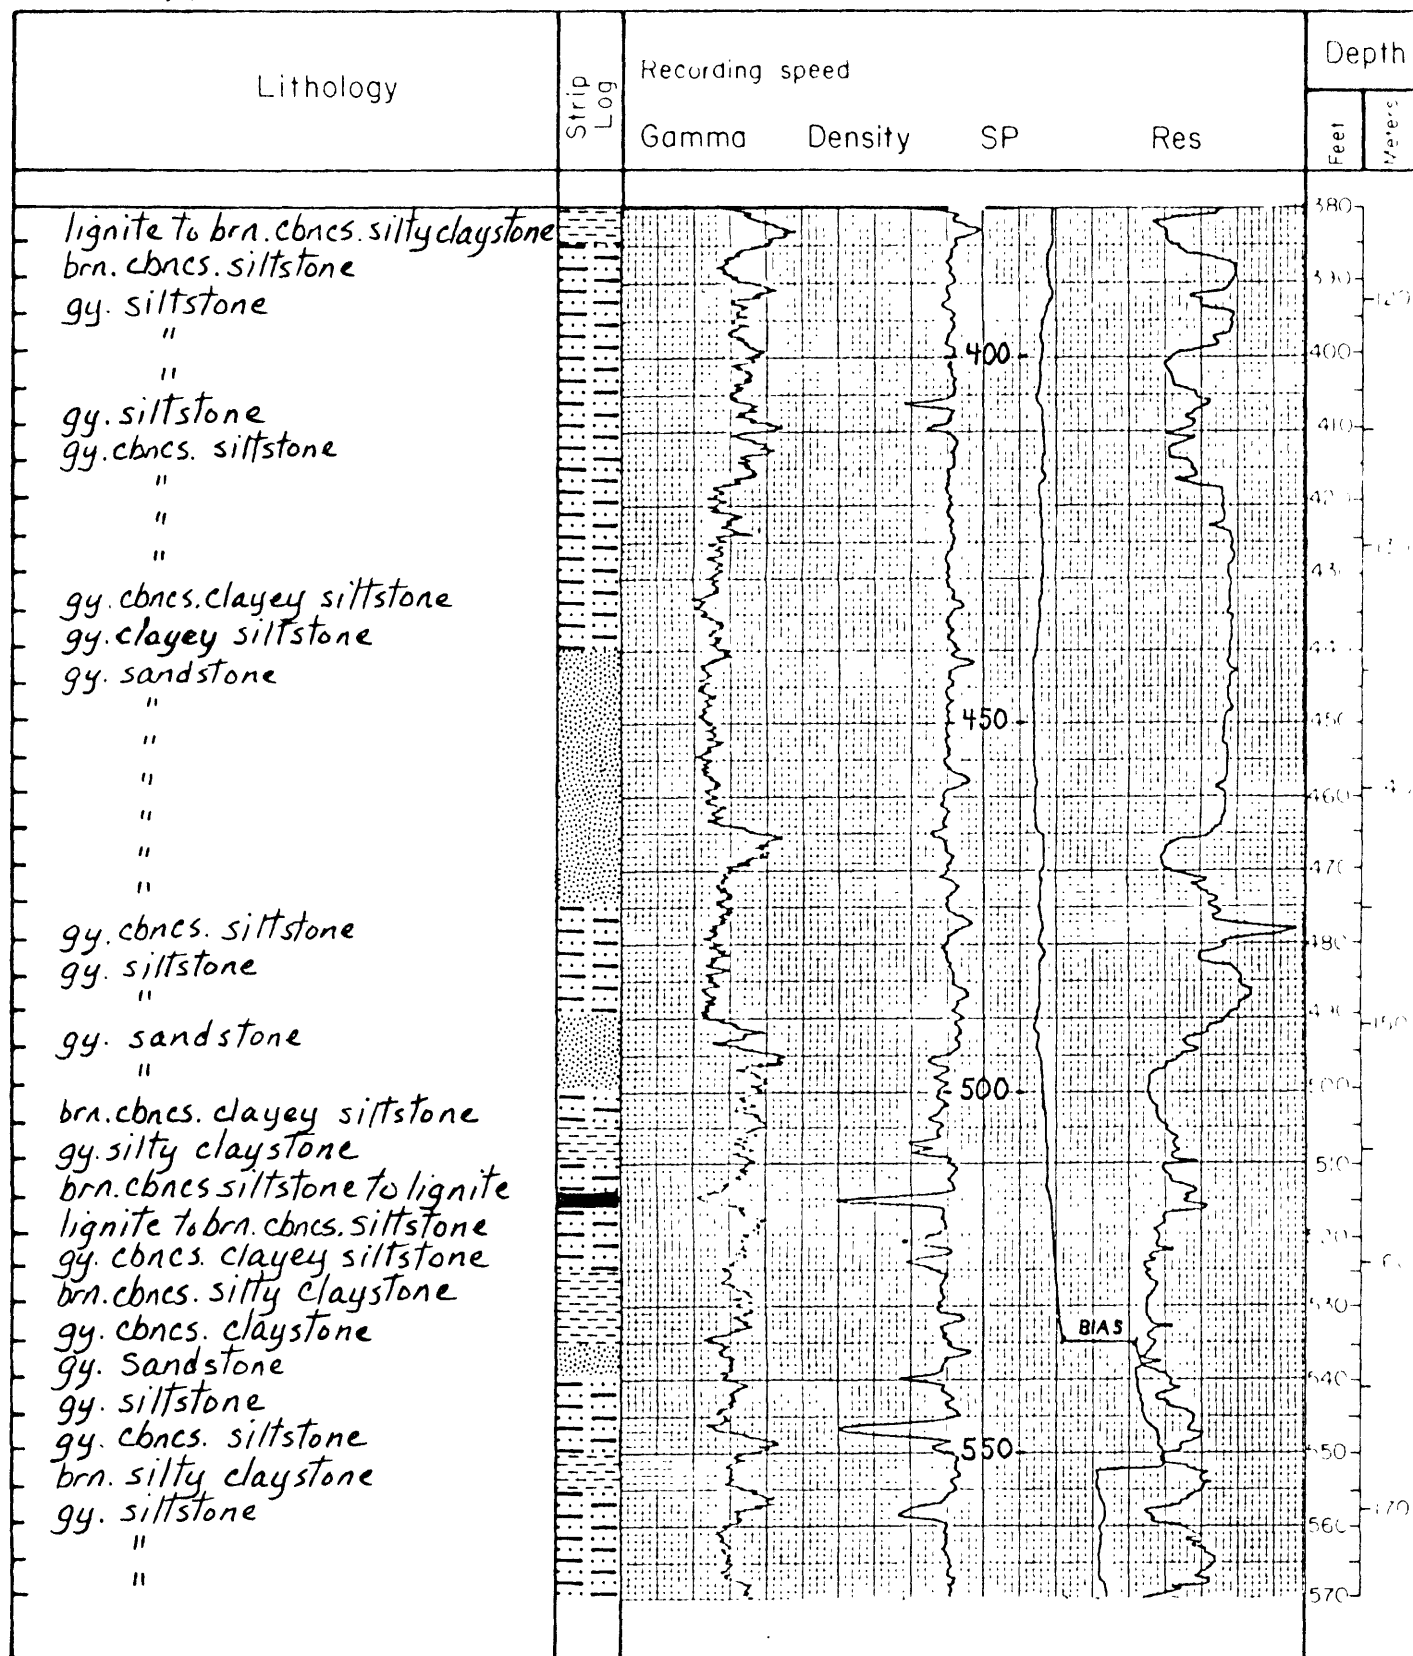 Lithology
Strip Log
Recording speed
Gamma Density SP Res
Depth
Feet
Meters
lignite to brn. cbncs. silty claystone
brn. cbncs. siltstone
gy. siltstone
"
"
gy. siltstone
gy. cbncs. siltstone
"
"
"
gy. cbncs. clayey siltstone
gy. clayey siltstone
gy. sandstone
"
"
"
"
"
"
gy. cbncs. siltstone
gy. siltstone
"
gy. sandstone
"
brn. cbncs. clayey siltstone
gy. silty claystone
brn. cbncs siltstone to lignite
lignite to brn. cbncs. siltstone
gy. cbncs. clayey siltstone
brn. cbncs. silty claystone
gy. cbncs. claystone
gy. Sandstone
gy. siltstone
gy. cbncs. siltstone
brn. silty claystone
gy. siltstone
"
"
400
450
500
BIAS
550
380
390
400
410
450
460
470
480
510
530
540
550
560
570